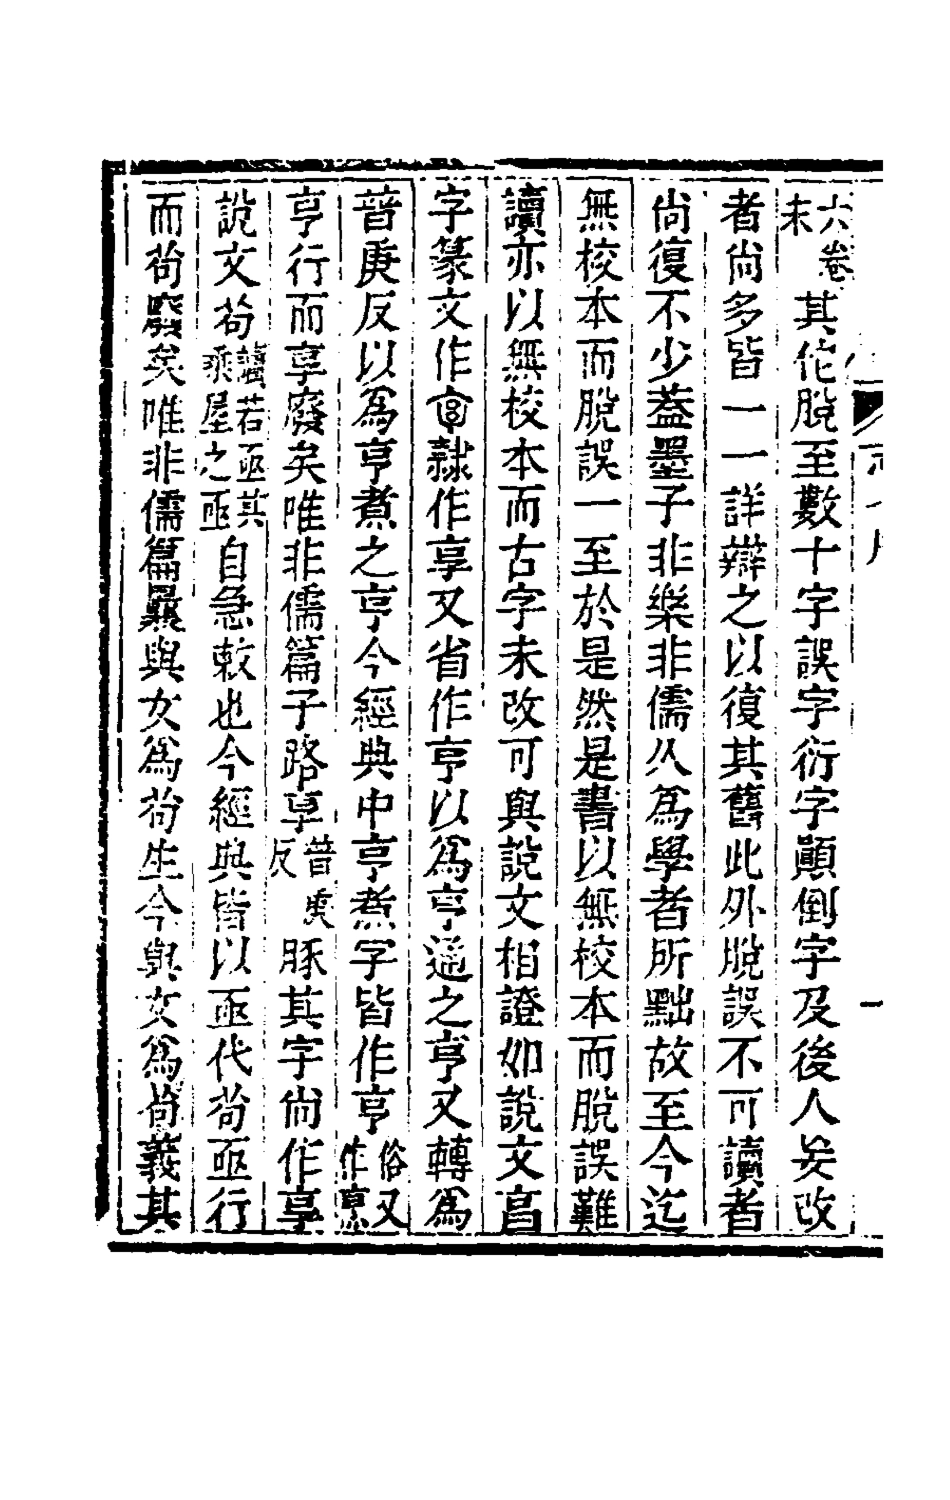 六卷末其佗脫至數十字誤字衍字顚倒字及後人妄改
者尙多皆一一詳辯之以復其舊此外脫誤不可讀者
尙復不少蓋墨子非樂非儒久爲學者所黜故至今迄
無校本而脫誤一至於是然是書以無校本而脫誤難
讀亦以無校本而古字未改可與說文相證如說文㐭
字篆文作㐭隸作享又省作亨以爲亨通之亨又轉爲
普庚反以爲亨煮之亨今經典中亨煮字皆作亨俗又作烹
亨行而享廢矣唯非儒篇子路享普庚反豚其字尙作享
說文茍讀若亟其乘屋之亟自急敕也今經典皆以亟代茍亟行
而茍廢矣唯非儒篇曩與女爲茍生今與女爲茍義其